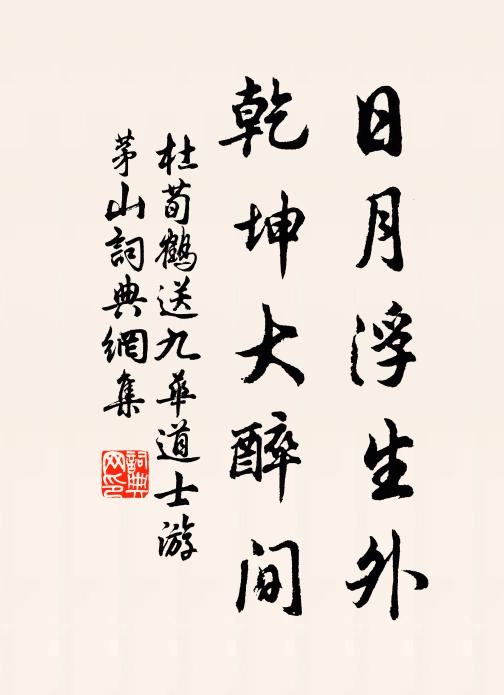 日月浮生外
乾坤大醉间
杜荀鶴送九華道士游
茅山詞典網集
詞典网印